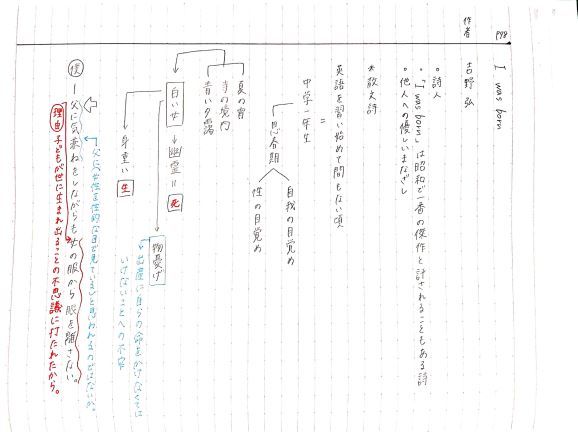 P98
I was born
作者
吉野 弘
・詩人
・「I was born」は昭和で一番の傑作と評されることもある詩
・他人への優しいまなざし
*散文詩
英語を習い始めて間もない頃
=
中学一年生
思春期
自我の目覚め
性の目覚め
夏の宵
寺の境内
青い夕靄
白い女 → 幽霊=死
物憂げ
出産に自らの命をかけなくては
いけないことへの不安
身重い 生
父に、女性を性的な目で見ていると思われるのではないか。
僕 ー 父に気兼ねをしながらも女の服から眼を離さない。
理由 子どもが世に生まれ出ることの不思議に打たれたから。